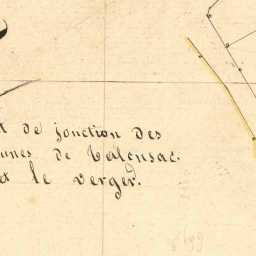 t de jonction des
unes de Talensac.
et le verger.